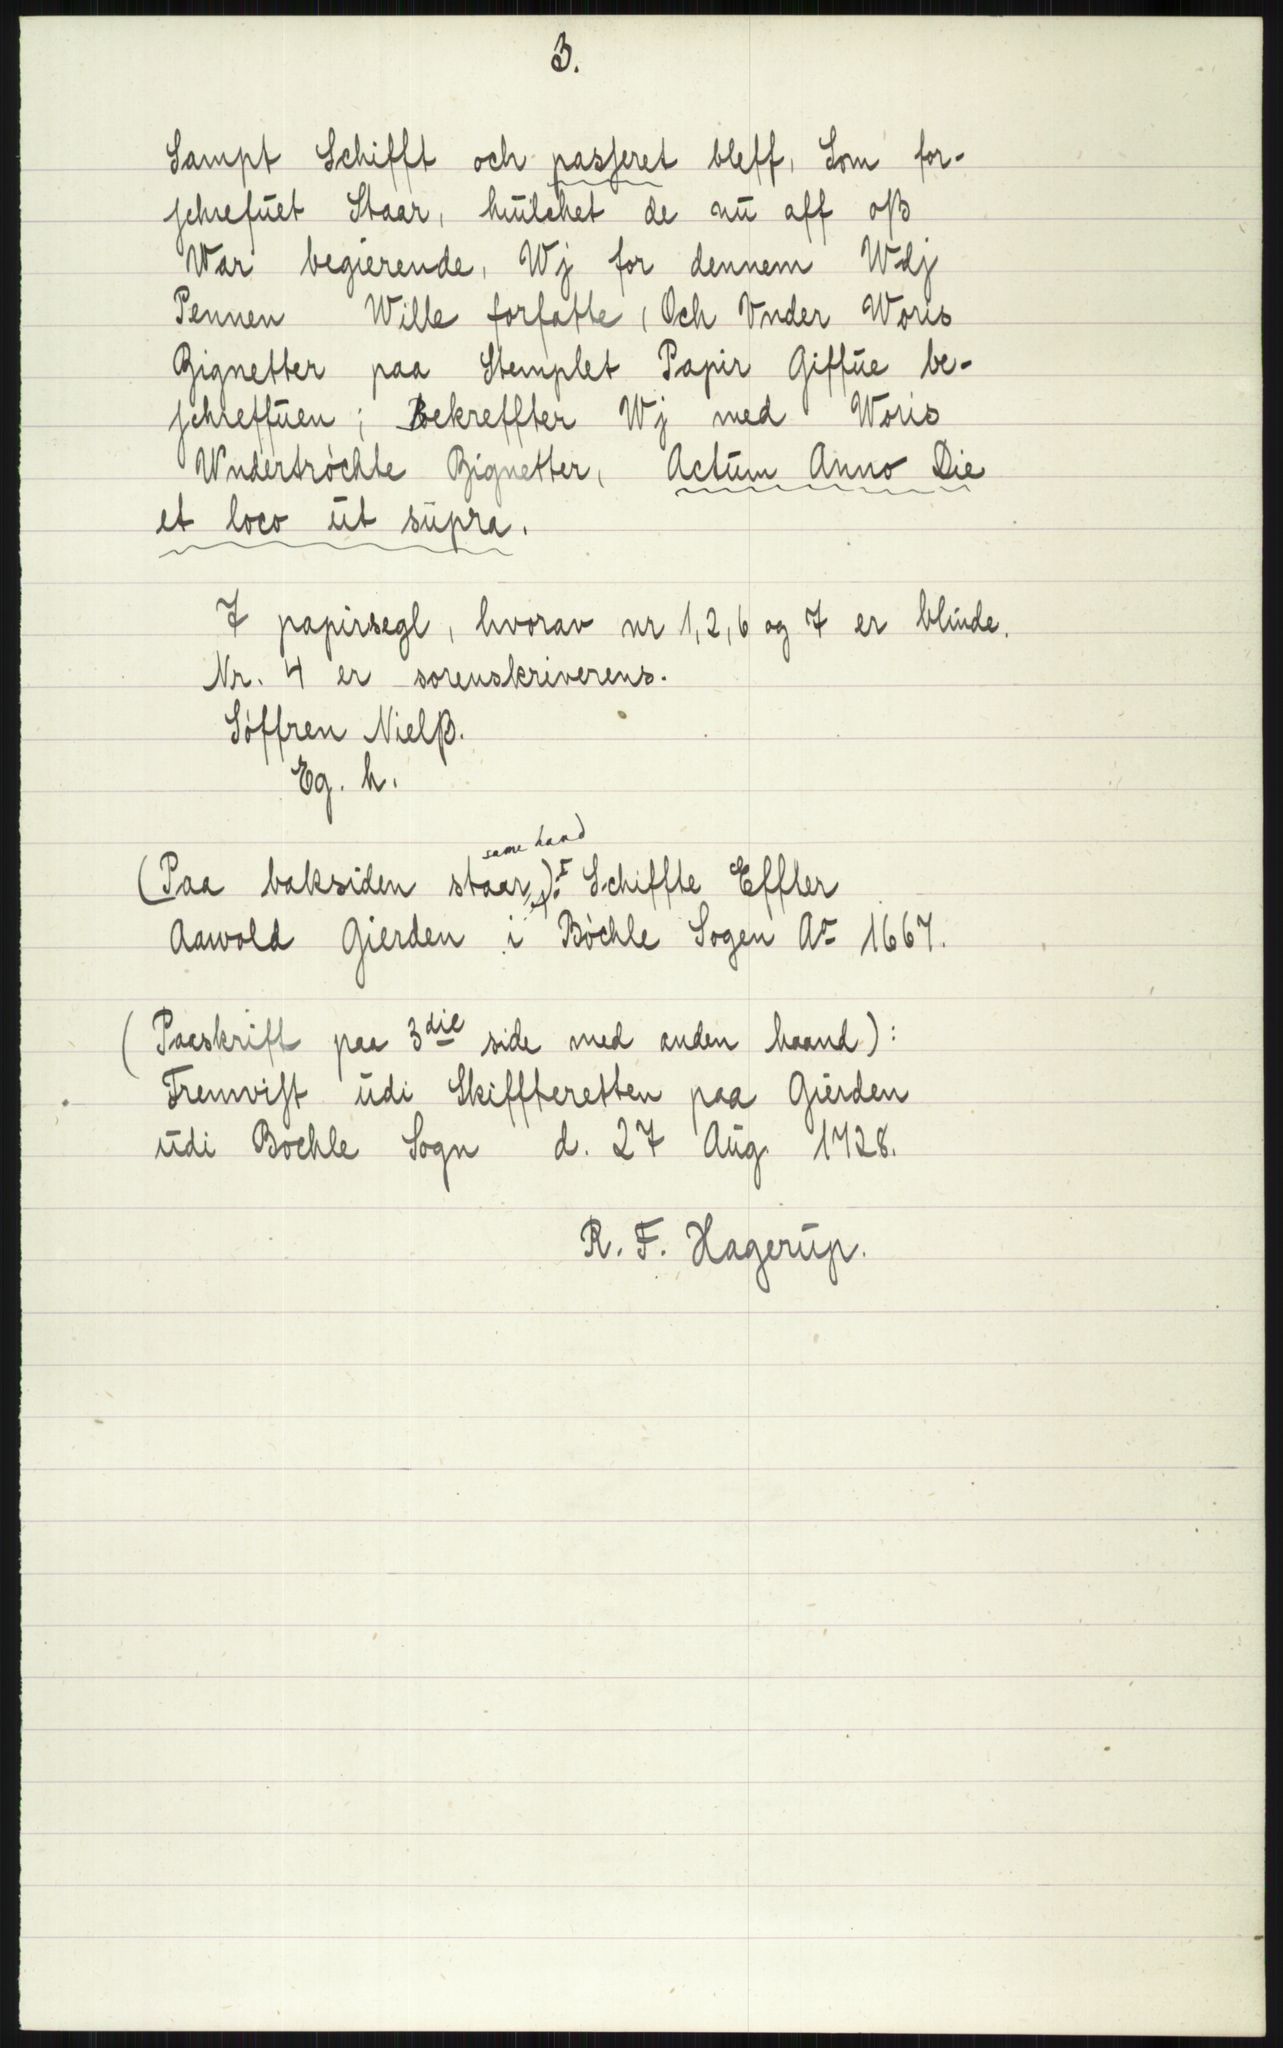 3.
Sampt Schifft och passeret bleff, Som for-
schrefuet Staar, huilchet de nu aff oß
War begierende, Wj for dennem Wdj
Pennen Wille forfatte, Och Vnder Woris
Zignetter paa Stemplet Papir Giffue be-
schreffuen; Bekreffter Wj med Woris
Wndertrøchte Zignetter, Actum Anno Die
et loco ut supra.
7 papirsegl, hvorav nr 1, 2, 6 og 7 er blinde.
Nr. 4 er sorenskriverens.
Søffren Nielß.
Eg. h.
same haand
(Paa baksiden staar): Schiffte Effter
Aawold Gierden i Bøchle Sogen Ao 1667.
(Paaskrift paa 3die side med anden haand):
Fremvist udi Skiffteretten paa Gierden
udi Bochle Sogn d. 27 Aug. 1728.
R. F. Hagerup.